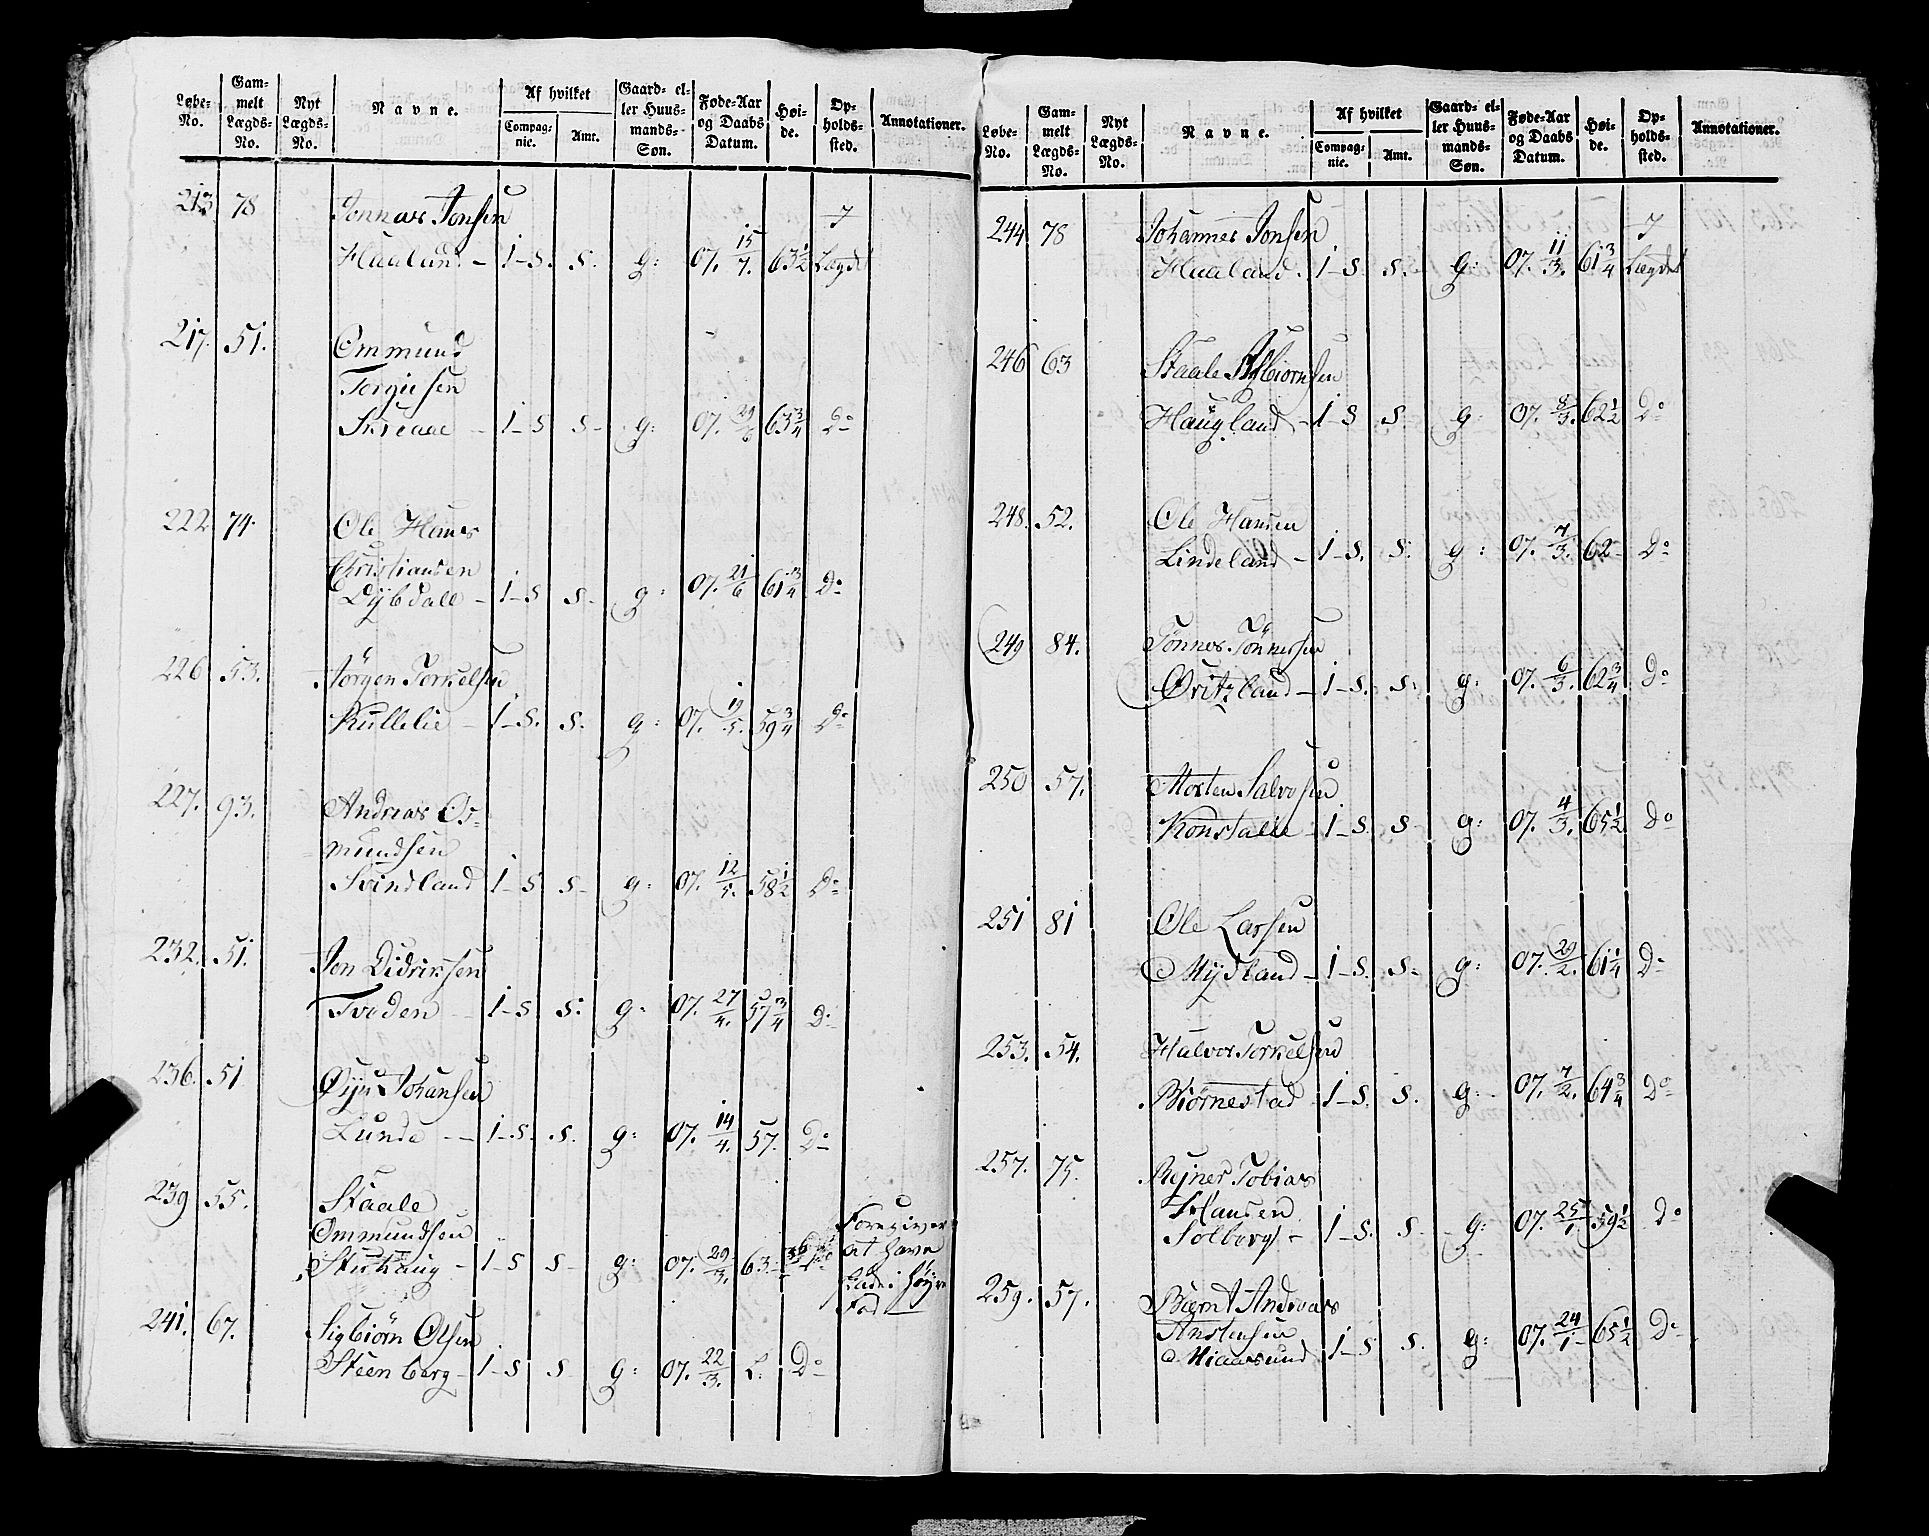 Løbe-No. Gammelt Lægds-No. Nyt Lægds-No. Navne. Af hvilket Compagnie. Amt. Gaard- eller Huusmands-Søn. Føde-Aar og Daabs Datum. Høide. Opholdssted. Annotationer.
213 78 Tonnas Jonsen i
Hualand - 1-S. S. g: 07. 15/7. 63 1/2 Lægdet
217. 51. Ommund
Torgiesen
- 1-S S- g: 07. 29/6 63 3/4 Do
222 74. Ole Hans
Christiansen
Dybdall - 1-S S- g: 07. 21/6 61 3/4 Do
226 53. Jörgen Torkelsen
Kullelie - 1-S. S. g: 07. 19/5. 59 3/4 Do
227. 93. Andreas Os-
mundsen
Svindland 1-S S- g: 07. 12/5. 58 1/2 Do
232. 51. Jon Didriksen
Tvoden - 1-S S. g: 07. 27/4. 57 3/4 Do
236. 51 Johansen
Lunde -- 1-S. S. g: 07. 14/4. 57. Do
239 55. Staale
Ommundsen
- 1-S S- g: 07. 29/3. 63 Do
Foregiver
at have
Skade i høyre
Fod
241. 67. Sigbiörn Olsen
Steenberg - 1-S S- g: 07. 22/3. L: Do
Løbe-No. Gammelt Lægds-No. Nyt Lægds-No. Navne. Af hvilket Compagnie. Amt. Gaard- eller Huusmands-Søn. Føde-Aar og Daabs Datum. Høide. Opholdssted. Annotationer.
244 78 Johannes Jonsen i
Hualand. 1-S S. g: 07. 11/3. 61 3/4 Lægdet
246 63 Staale Asbiornsen
Haugland - 1-S S. g 07. 8/3. 62 1/2 Do
248. 52. Ole Hansen
Lindeland - 1-S. S. g: 07. 7/3. 62- Do
249 84. Tönnes Tönnessen
Qvitzland - 1-S. S. g: 07. 6/3. 62 3/4 Do
250 57. Morten Salvesen
Konstalie - 1-S. S- g: 07. 4/3. 65 1/2 Do
251 81 Ole Larsen
Mydland - 1-S. S- g: 07. 29/2. 61 1/4 Do
253. 54. Halvor Torkelsen
Biörnestad - 1-S. S. g: 07. 7/2. 64 3/4 Do
257. 75. Rejner Tobias
Hansen
Solberg - 1-S. S- g: 07. 25/1. 59 1/2 Do
259. 57. Bærnt Andreas
Anstensen
1-S S. g: 07. 24/1 65 1/2 Do